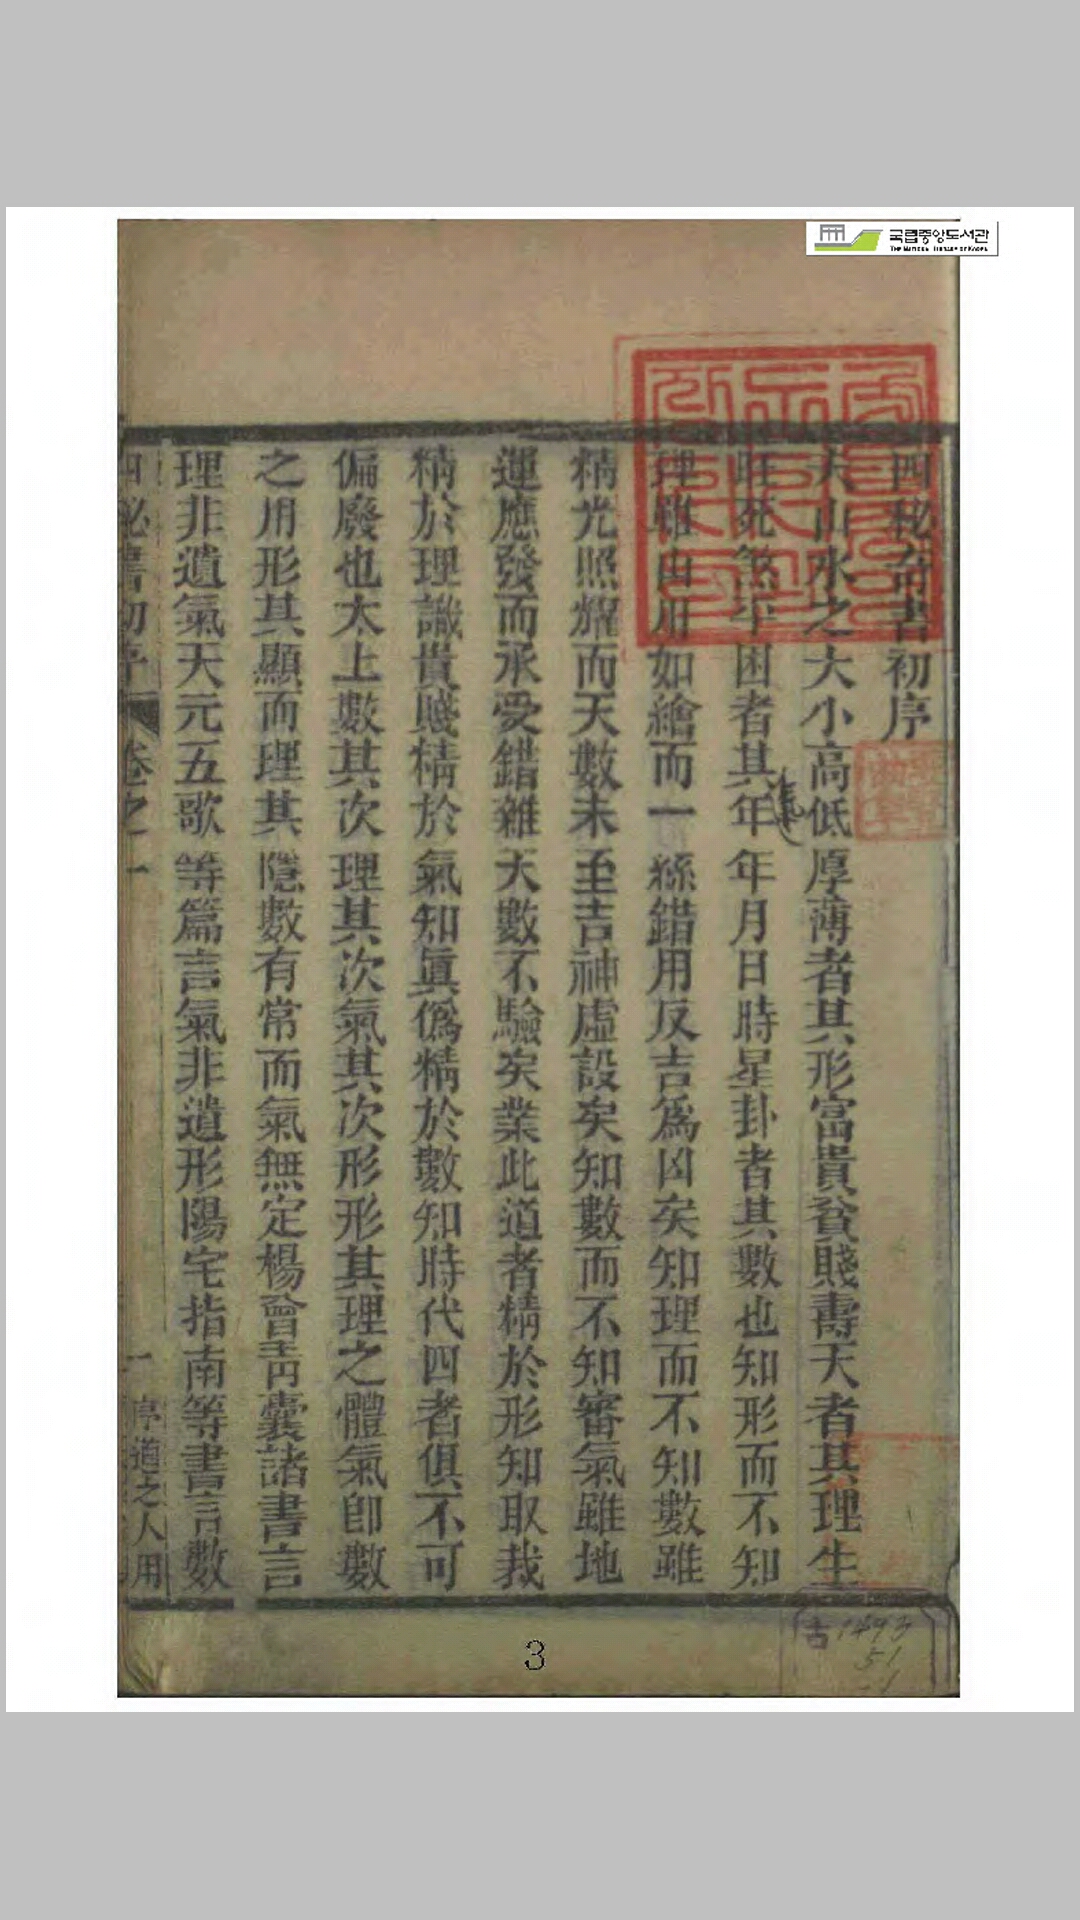 국립중앙도서관
THE NATIONAL LIBRARY OF KOREA
四秘全書初序
夫山水之大小高低厚薄者其形富貴貧賤壽夭者其理生
旺死煞平困者其年年月日時星卦者其數也知形而不知
氣
理雖山川如繪而一絲錯用反吉為凶矣知理而不知數雖
精光照耀而天數未至吉神虛設矣知數而不知審氣雖地
運應發而承受錯雜天數不驗矣業此道者精於形知取裁
精於理識貴賤精於氣知眞僞精於數知時代四者俱不可
偏廢也太上數其次理其次氣其次形形其理之體氣卽數
之用形其顯而理其隱數有常而氣無定楊曾靑囊諸書言
理非遺氣天元五歌等篇言氣非遺形陽宅指南等書言數
四秘書初序 卷之一 一 序道之人用
古1493
51
-1
3